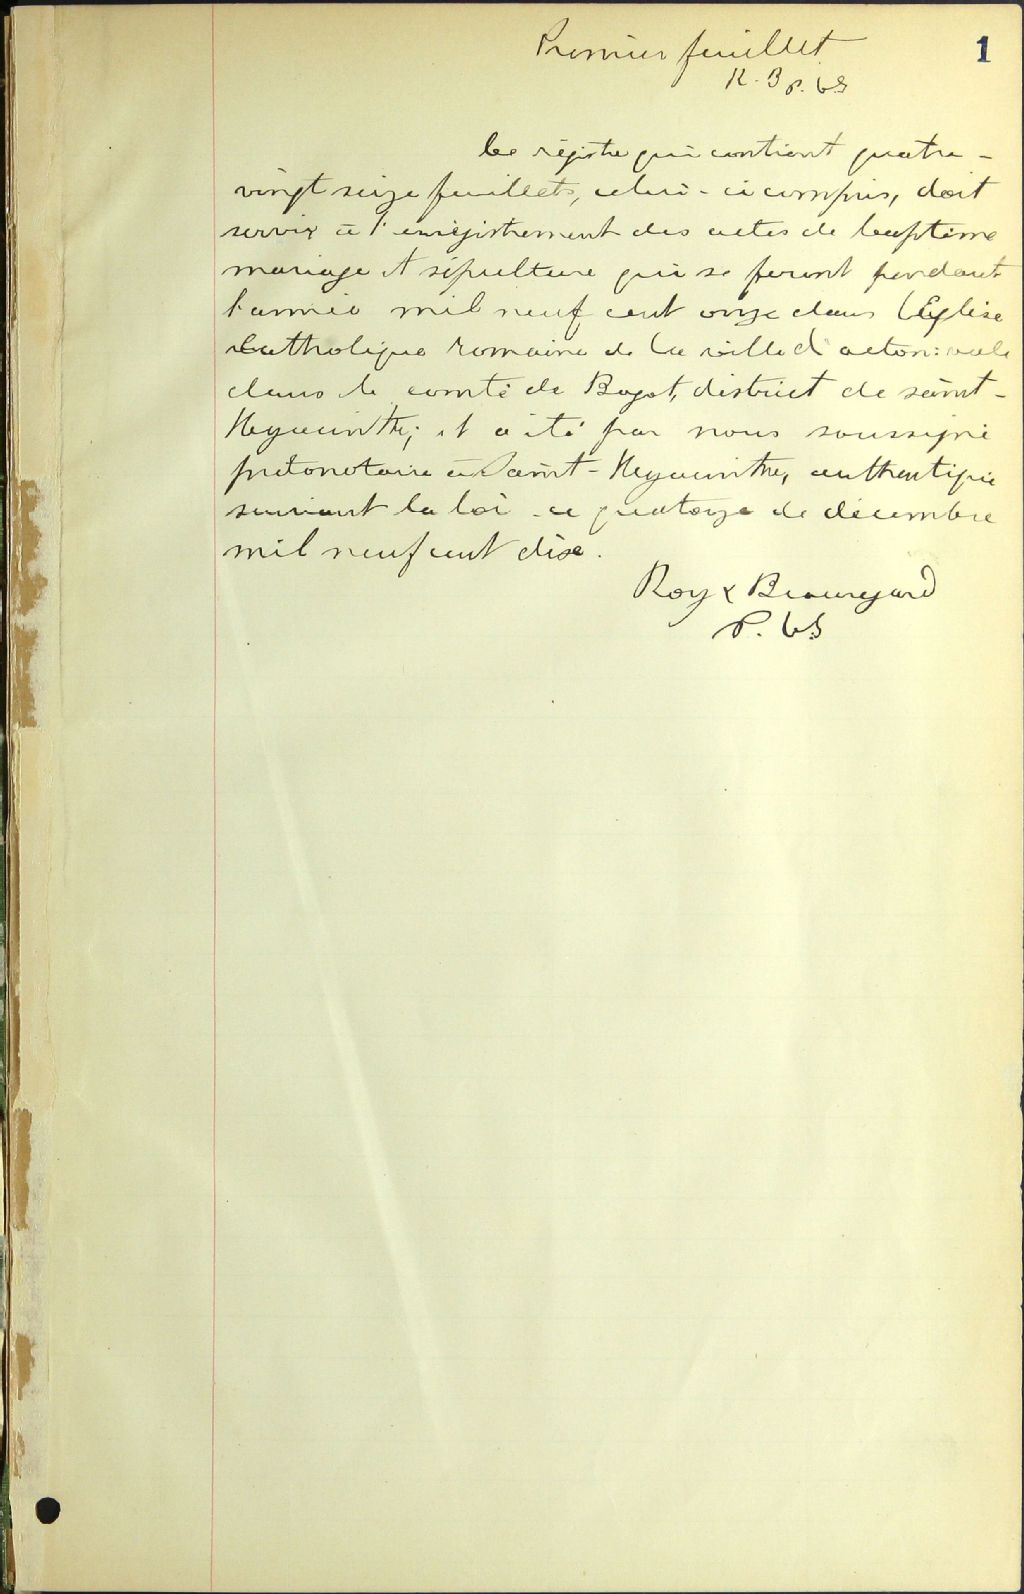 Premier feuillet
1
R. B P. C.S
Ce régistre qui contient quatre-
vingt seize feuillets, celui-ci compris, doit
servir à l'enrégistrement des actes de baptême
mariage et sépulture qui se feront pendant
l'année mil neuf cent onze dans l'Eglise
Catholique romaine de la ville d'acton:vale
dans le comté de Bagot, district de saint-
Hyacinthe; et a été par nous soussigné
protonotaire à Saint-Hyacinthe, authentiqué
suivant la loi ce quatorze de décembre
mil neuf cent dix.
Roy & Beauregard
P. C.S